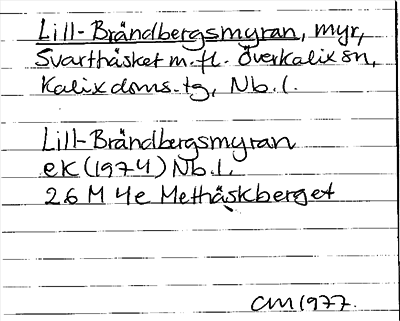 Lill-Brändbergsmyran, myr,
Svarthåsket m.fl. Överkalix sn,
Kalix doms.tg, Nb.l.
Lill-Brändbergsmyran
ek (1974) Nb.l.
26 M 4e Methåskberget
CM 1977.